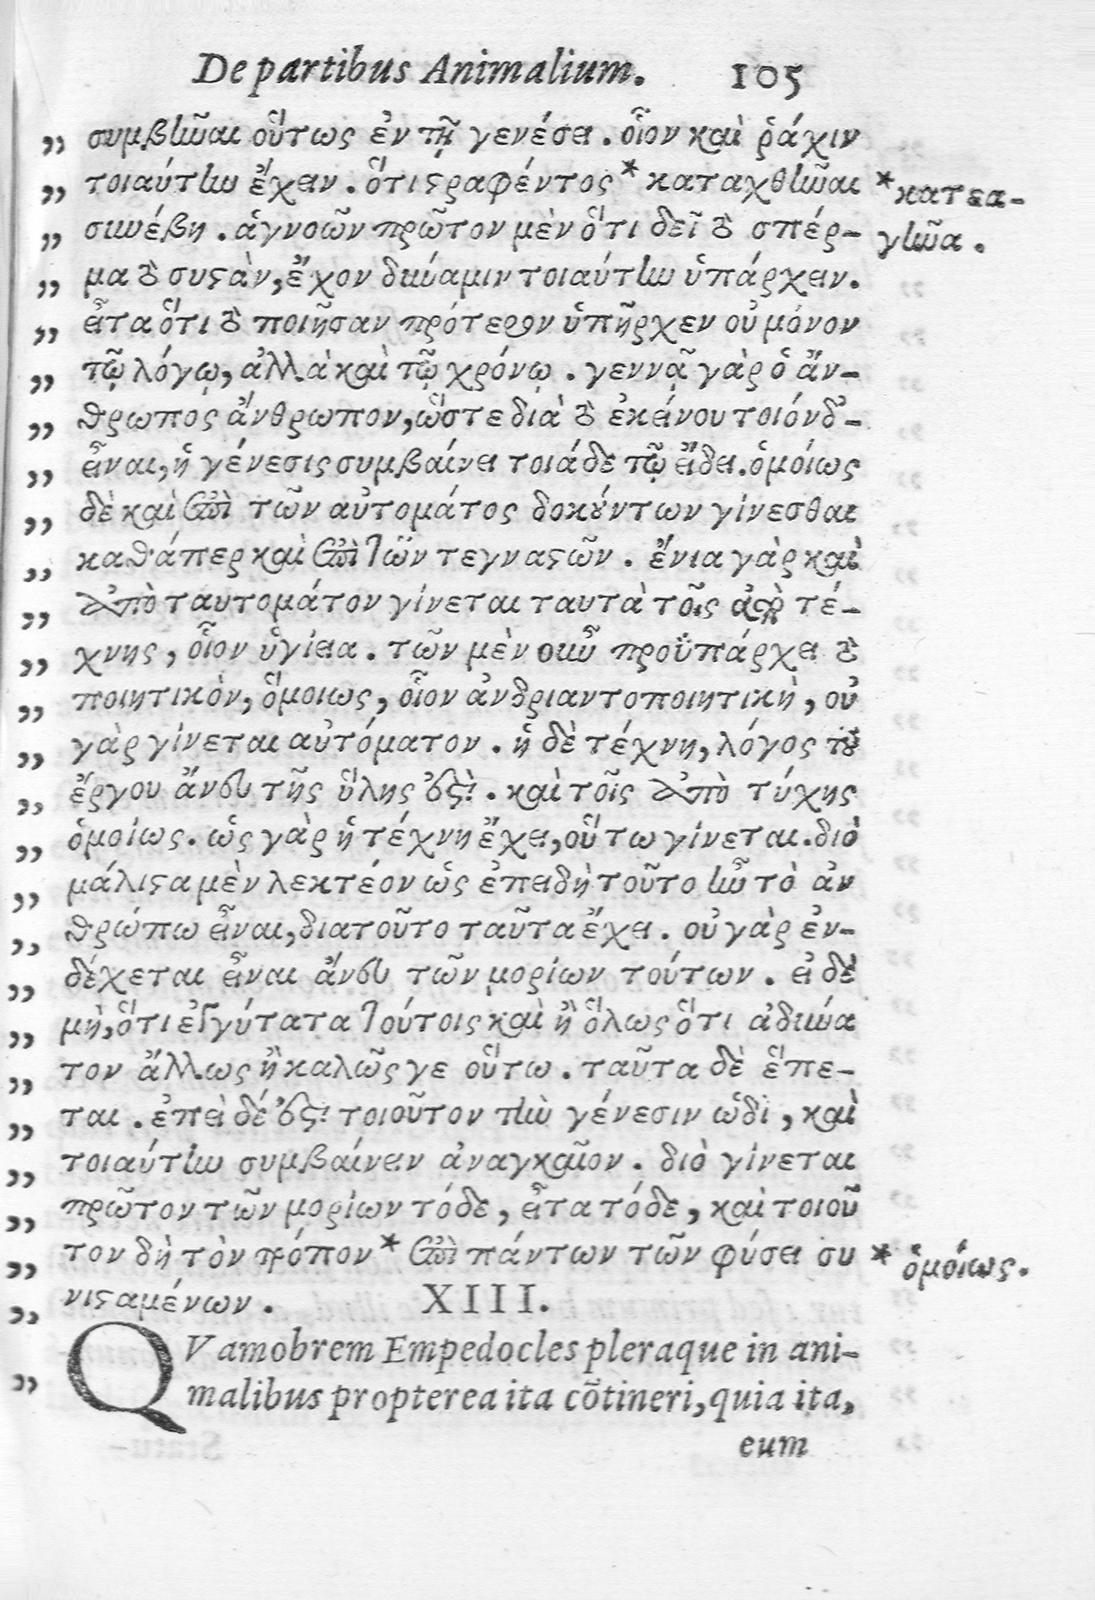 De partibus Animalium. 105
„ συμβῆναι οὕτως ἐν τῇ γενέσει. οἷον καὶ ῥάχιν
„ τοιαύτην ἔχειν. ὅτι στραφέντος * καταχθῆναι
* κατεα-
„ συνέβη. ἀγνοῶν πρῶτον μὲν ὅτι δεῖ τὸ σπέρ-
γῆναι.
„ μα τὸ συστὰν, ἔχον δύναμιν τοιαύτην ὑπάρχειν.
„ εἶτα ὅτι τὸ ποιῆσαν πρότερον ὑπῆρχεν οὐ μόνον
„ τῷ λόγῳ, ἀλλὰ καὶ τῷ χρόνῳ. γεννᾷ γὰρ ὁ ἄν-
„ θρωπος ἄνθρωπον, ὥστε διὰ τὸ ἐκείνου τοιόνδ'
„ εἶναι, ἡ γένεσις συμβαίνει τοιάδε τῷ εἴδει. ὁμοίως
„ δὲ καὶ ἐπὶ τῶν αὐτομάτος δοκούντων γίνεσθαι
„ καθάπερ καὶ ἐπὶ τῶν τεγναστῶν. ἔνια γὰρ καὶ
„ ἀπὸ ταυτομάτον γίνεται ταυτὰ τοῖς ἀπὸ τέ-
„ χνης, οἷον ὑγίεια. τῶν μὲν οὖν προϋπάρχει τὸ
„ ποιητικὸν, ὅμοιως, οἷον ἀνδριαντοποιητικὴ, οὐ
„ γὰρ γίνεται αὐτόματον. ἡ δὲ τέχνη, λόγος τοῦ
„ ἔργου ἄνευ τῆς ὕλης ἐστί. καὶ τοῖς ἀπὸ τύχης
„ ὁμοίως. ὡς γὰρ ἡ τέχνη ἔχει, οὕτω γίνεται. διὸ
„ μάλιστα μὲν λεκτέον ὡς ἐπειδὴ τοῦτο ἦν τὸ ἀν
„ θρώπω εἶναι, διατοῦτο ταῦτα ἔχει. οὐ γὰρ ἐν-
„ δέχεται εἶναι ἄνευ τῶν μορίων τούτων. εἰ δὲ
„ μὴ, ὅτι ἐγγύτατα τούτοις καὶ ἢ ὅλως ὅτι ἀδύνα
„ τον ἄλλως ἢ καλῶς γε οὕτω. ταῦτα δὲ ἕπε-
„ ται. ἐπεὶ δέ ἐστι τοιοῦτον τὴν γένεσιν ὡδὶ, καὶ
„ τοιαύτην συμβαίνειν ἀναγκαῖον. διὸ γίνεται
„ πρῶτον τῶν μορίων τόδε, εἶτα τόδε, καὶ τοιοῦ
„ τον δὴ τὸν τρόπον * ἐπὶ πάντων τῶν φύσει συ
* ὁμοίως.
„ νισταμένων. XIII.
QVamobrem Empedocles pleraque in ani-
„ malibus propterea ita cõtineri, quia ita,
eum